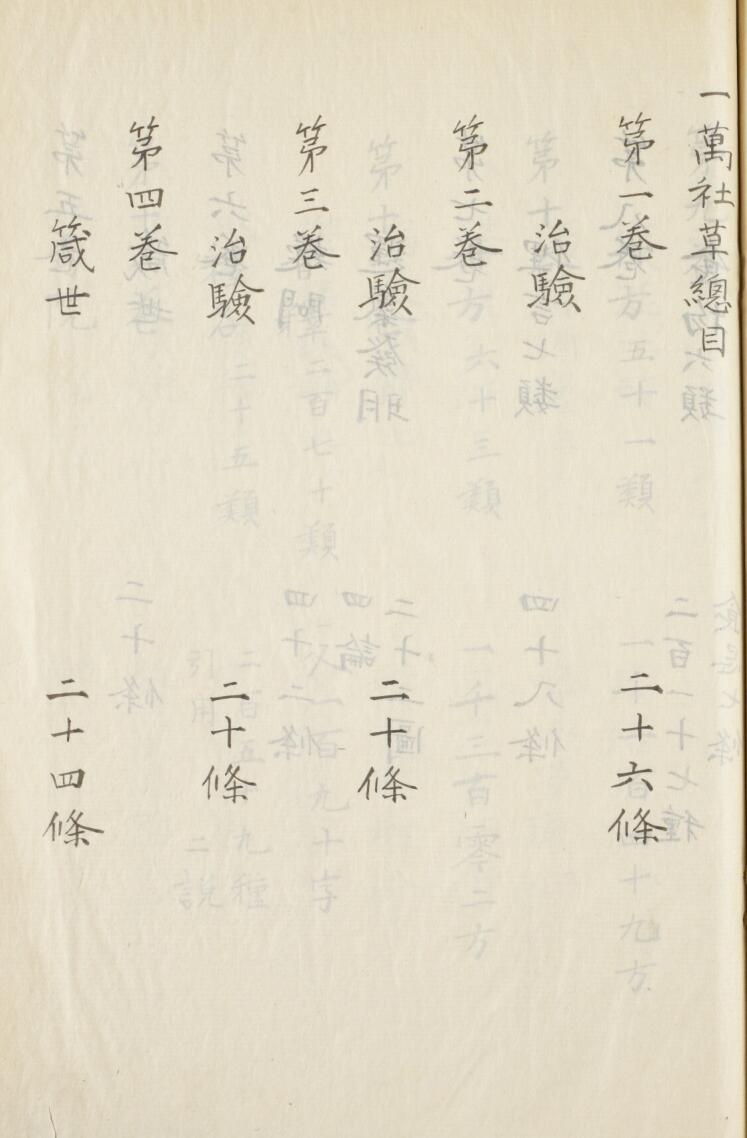 一萬社草總目
第一卷
治驗 二十六條
第二卷
治驗 二十條
第三卷
治驗 二十條
第四卷
箴世 二十四條